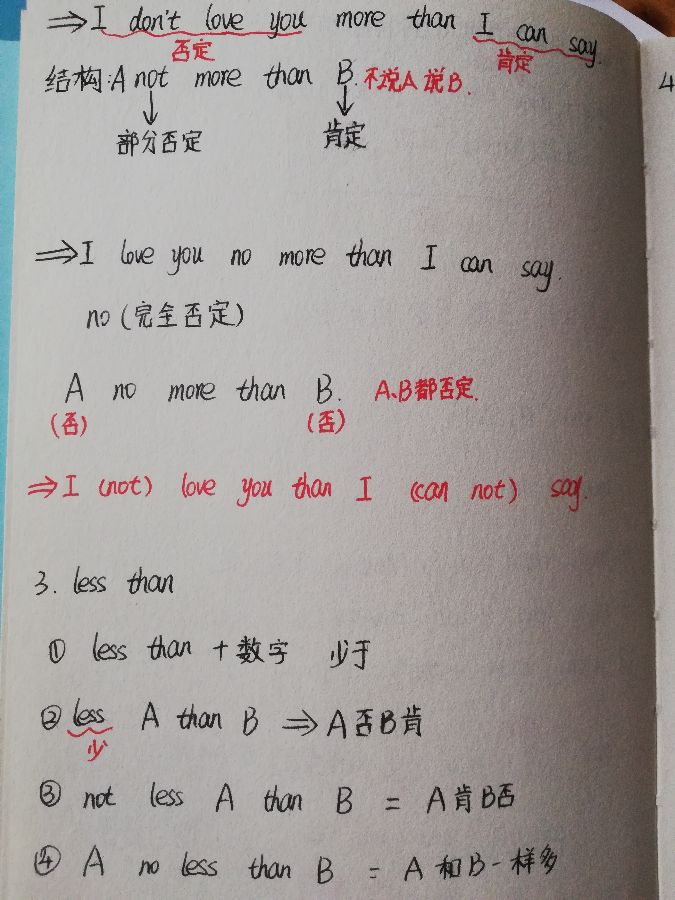 ⇒I don't love you more than I can say.
否定 肯定
结构:A not more than B.不说A说B.
↓ ↓
部分否定 肯定
⇒I love you no more than I can say.
no(完全否定)
A no more than B. A、B都否定.
(否) (否)
⇒I (not) love you than I (can not) say.
3. less than
① less than +数字 少于
② less A than B ⇒A否B肯
少
③ not less A than B = A肯B否
④ A no less than B = A和B一样多
4